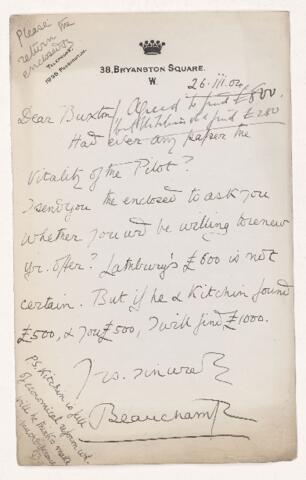 Please
return the
enclosed
TELEPHONE:
1636 PADDINGTON.
38, BRYANSTON SQUARE.
W.
26. III. 04
Dear Buxton, Agreed to find £600.
but Kitchin to find £200
Had ever any paper the
Vitality of the Pilot?
I send you the enclosed to ask you
whether you wd be willing to renew
yr. offer? Lathbury's £600 is not
certain. But if he & Kitchin found
£500, & you £500, I will find £1000.
Yrs. sincerely
Beauchamp
P.S. Kitchin is full
of economical reform wh.
will be